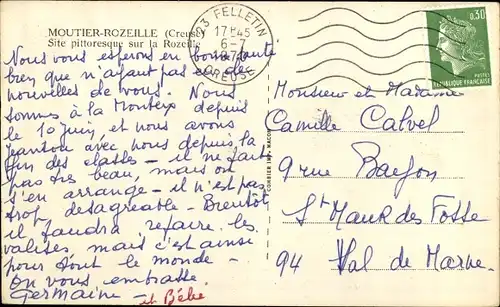 MOUTIER-ROZEILLE (Creuse)
Site pittoresque sur la Rozeille
Nous vous espérons en bonne santé
bien que n'ayant pas eu de
nouvelles de vous. Nous
sommes à la Monteix depuis
le 10 Juin, et nous avons
avec nous depuis la
fin des classes - il ne fait
pas très beau, mais on
s'en arrange - il n'est pas
trop désagréable - Bientôt
il faudra refaire les
valises mais c'est ainsi
pour tout le monde -
on vous embrasse
Germaine - et Bébé
COMBIER IMP. MACON
23 FELLETIN
17H45
6-7
CREUSE
0,30
POSTES
REPUBLIQUE FRANÇAISE
Monsieur et Madame
Camille Calvel
9 rue
St Maur des Fossé
94 Val de Marne